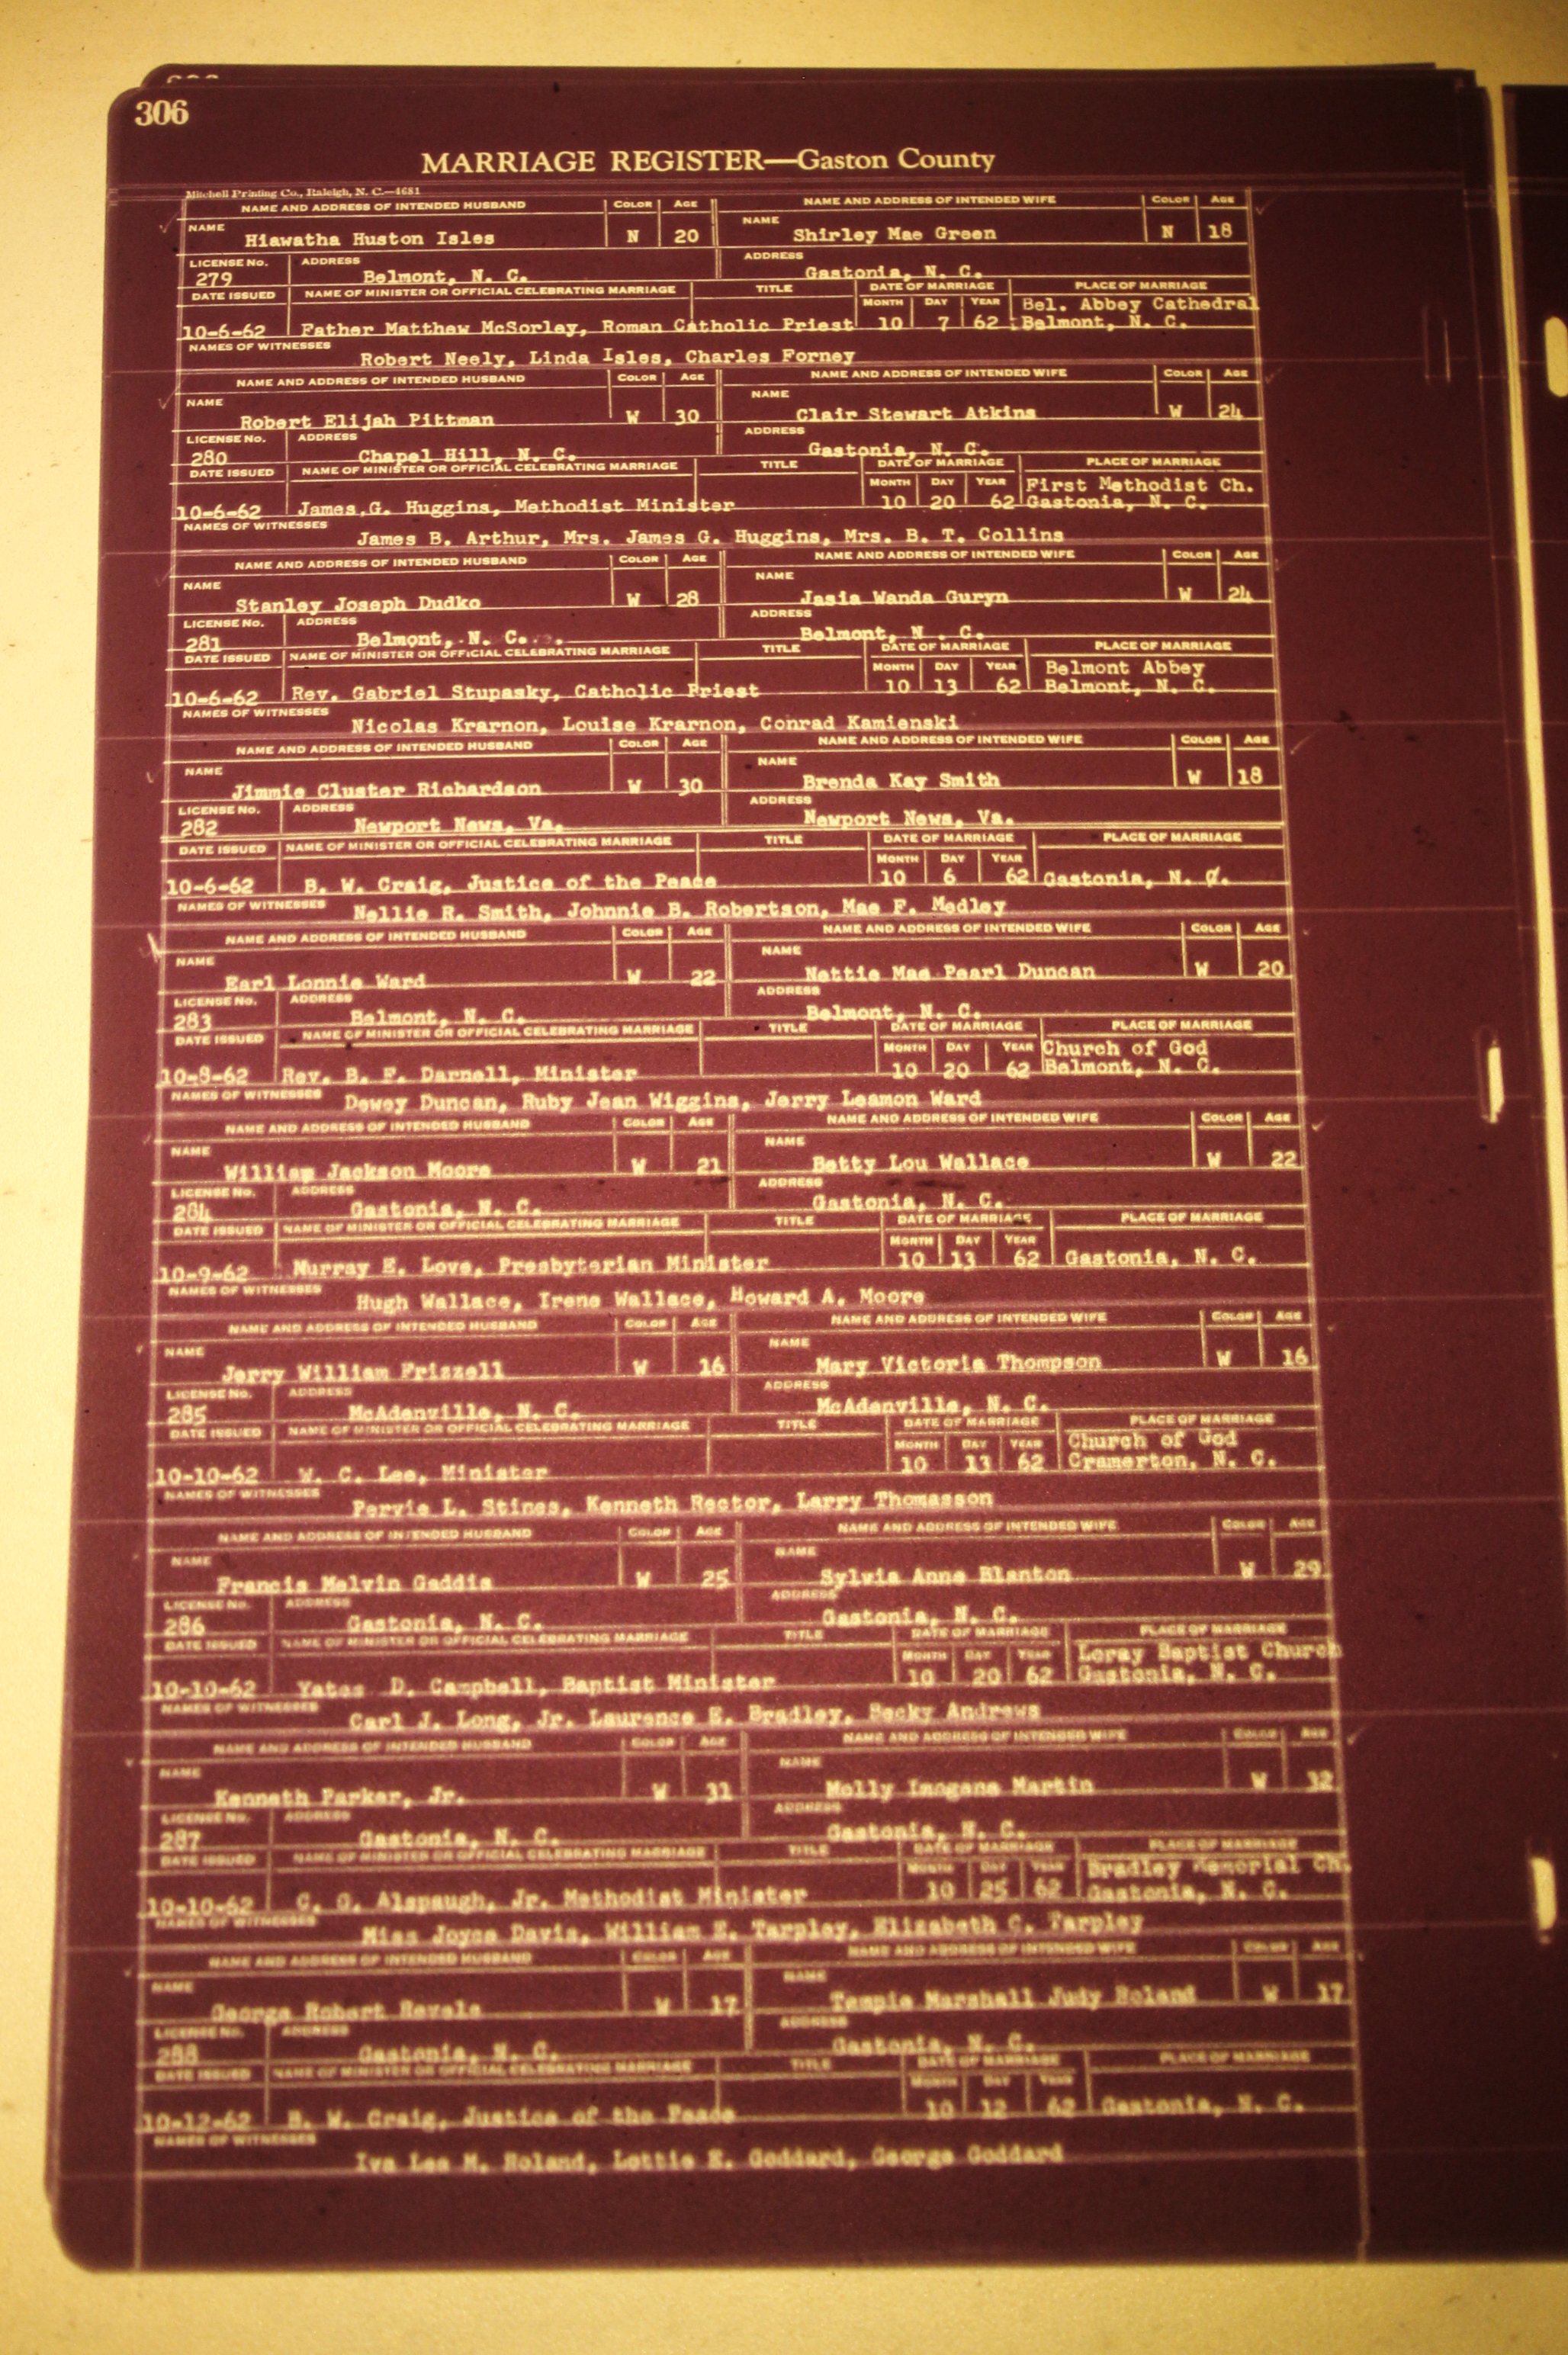 306
MARRIAGE REGISTER—Gaston County
Mitchell Printing Co., Raleigh, N. C.—4681
NAME AND ADDRESS OF INTENDED HUSBAND COLOR AGE NAME AND ADDRESS OF INTENDED WIFE COLOR AGE
NAME Hiawatha Huston Isles N 20 NAME Shirley Mae Green N 18
LICENSE No. ADDRESS ADDRESS
279 Belmont, N. C. Gastonia, N. C.
DATE ISSUED NAME OF MINISTER OR OFFICIAL CELEBRATING MARRIAGE TITLE DATE OF MARRIAGE PLACE OF MARRIAGE
MONTH DAY YEAR Bel. Abbey Cathedral
10-6-62 Father Matthew McSorley, Roman Catholic Priest 10 7 62 Belmont, N. C.
NAMES OF WITNESSES Robert Neely, Linda Isles, Charles Forney
NAME AND ADDRESS OF INTENDED HUSBAND COLOR AGE NAME AND ADDRESS OF INTENDED WIFE COLOR AGE
NAME Robert Elijah Pittman W 30 NAME Clair Stewart Atkins W 24
LICENSE No. ADDRESS ADDRESS
280 Chapel Hill, N. C. Gastonia, N. C.
DATE ISSUED NAME OF MINISTER OR OFFICIAL CELEBRATING MARRIAGE TITLE DATE OF MARRIAGE PLACE OF MARRIAGE
MONTH DAY YEAR First Methodist Ch.
10-6-62 James G. Huggins, Methodist Minister 10 20 62 Gastonia, N. C.
NAMES OF WITNESSES James B. Arthur, Mrs. James G. Huggins, Mrs. B. T. Collins
NAME AND ADDRESS OF INTENDED HUSBAND COLOR AGE NAME AND ADDRESS OF INTENDED WIFE COLOR AGE
NAME Stanley Joseph Dudko W 28 NAME Jasia Wanda Guryn W 24
LICENSE No. ADDRESS ADDRESS
281 Belmont, N. C. Belmont, N . C.
DATE ISSUED NAME OF MINISTER OR OFFICIAL CELEBRATING MARRIAGE TITLE DATE OF MARRIAGE PLACE OF MARRIAGE
MONTH DAY YEAR Belmont Abbey
10-6-62 Rev. Gabriel Stupasky, Catholic Priest 10 13 62 Belmont, N. C.
NAMES OF WITNESSES Nicolas Krarnon, Louise Krarnon, Conrad Kamienski
NAME AND ADDRESS OF INTENDED HUSBAND COLOR AGE NAME AND ADDRESS OF INTENDED WIFE COLOR AGE
NAME Jimmie Cluster Richardson W 30 NAME Brenda Kay Smith W 18
LICENSE No. ADDRESS ADDRESS
282 Newport News, Va. Newport News, Va.
DATE ISSUED NAME OF MINISTER OR OFFICIAL CELEBRATING MARRIAGE TITLE DATE OF MARRIAGE PLACE OF MARRIAGE
MONTH DAY YEAR
10-6-62 B. W. Craig, Justice of the Peace 10 6 62 Gastonia, N. C.
NAMES OF WITNESSES Nellie R. Smith, Johnnie B. Robertson, Mae F. Medley
NAME AND ADDRESS OF INTENDED HUSBAND COLOR AGE NAME AND ADDRESS OF INTENDED WIFE COLOR AGE
NAME Earl Lonnie Ward W 22 NAME Nettie Mae Pearl Duncan W 20
LICENSE No. ADDRESS ADDRESS
283 Belmont, N. C. Belmont, N. C.
DATE ISSUED NAME OF MINISTER OR OFFICIAL CELEBRATING MARRIAGE TITLE DATE OF MARRIAGE PLACE OF MARRIAGE
MONTH DAY YEAR Church of God
10-8-62 Rev. B. F. Darnell, Minister 10 20 62 Belmont, N. C.
NAMES OF WITNESSES Dewey Duncan, Ruby Jean Wiggins, Jerry Leamon Ward
NAME AND ADDRESS OF INTENDED HUSBAND COLOR AGE NAME AND ADDRESS OF INTENDED WIFE COLOR AGE
NAME William Jackson Moore W 21 NAME Betty Lou Wallace W 22
LICENSE No. ADDRESS ADDRESS
284 Gastonia, N. C. Gastonia, N. C.
DATE ISSUED NAME OF MINISTER OR OFFICIAL CELEBRATING MARRIAGE TITLE DATE OF MARRIAGE PLACE OF MARRIAGE
MONTH DAY YEAR
10-9-62 Murray E. Love, Presbyterian Minister 10 13 62 Gastonia, N. C.
NAMES OF WITNESSES Hugh Wallace, Irene Wallace, Howard A. Moore
NAME AND ADDRESS OF INTENDED HUSBAND COLOR AGE NAME AND ADDRESS OF INTENDED WIFE COLOR AGE
NAME Jerry William Frizzell W 16 NAME Mary Victoria Thompson W 16
LICENSE No. ADDRESS ADDRESS
285 McAdenville, N. C. McAdenville, N. C.
DATE ISSUED NAME OF MINISTER OR OFFICIAL CELEBRATING MARRIAGE TITLE DATE OF MARRIAGE PLACE OF MARRIAGE
MONTH DAY YEAR Church of God
10-10-62 W. C. Lee, Minister 10 13 62 Cramerton, N. C.
NAMES OF WITNESSES Pervie L. Stines, Kenneth Rector, Larry Thomasson
NAME AND ADDRESS OF INTENDED HUSBAND COLOR AGE NAME AND ADDRESS OF INTENDED WIFE COLOR AGE
NAME Francis Melvin Gaddis W 25 NAME Sylvia Anne Blanton W 29
LICENSE No. ADDRESS ADDRESS
286 Gastonia, N. C. Gastonia, N. C.
DATE ISSUED NAME OF MINISTER OR OFFICIAL CELEBRATING MARRIAGE TITLE DATE OF MARRIAGE PLACE OF MARRIAGE
MONTH DAY YEAR Loray Baptist Church
10-10-62 Yates D. Campbell, Baptist Minister 10 20 62 Gastonia, N. C.
NAMES OF WITNESSES Carl J. Long, Jr. Laurence E. Bradley, Becky Andrews
NAME AND ADDRESS OF INTENDED HUSBAND COLOR AGE NAME AND ADDRESS OF INTENDED WIFE COLOR AGE
NAME Kenneth Parker, Jr. W 31 NAME Molly Imogene Martin W 32
LICENSE No. ADDRESS ADDRESS
287 Gastonia, N. C. Gastonia, N. C.
DATE ISSUED NAME OF MINISTER OR OFFICIAL CELEBRATING MARRIAGE TITLE DATE OF MARRIAGE PLACE OF MARRIAGE
MONTH DAY YEAR Bradley Memorial Ch.
10-10-62 C. G. Alspaugh, Jr. Methodist Minister 10 25 62 Gastonia, N. C.
NAMES OF WITNESSES Miss Joyce Davis, William E. Tarpley, Elizabeth C. Tarpley
NAME AND ADDRESS OF INTENDED HUSBAND COLOR AGE NAME AND ADDRESS OF INTENDED WIFE COLOR AGE
NAME George Robert Revels W 17 NAME Tempie Marshall Judy Holand W 17
LICENSE No. ADDRESS ADDRESS
288 Gastonia, N. C. Gastonia, N. C.
DATE ISSUED NAME OF MINISTER OR OFFICIAL CELEBRATING MARRIAGE TITLE DATE OF MARRIAGE PLACE OF MARRIAGE
MONTH DAY YEAR
10-12-62 B. W. Craig, Justice of the Peace 10 12 62 Gastonia, N. C.
NAMES OF WITNESSES Iva Lea M. Holand, Lottie E. Goddard, George Goddard